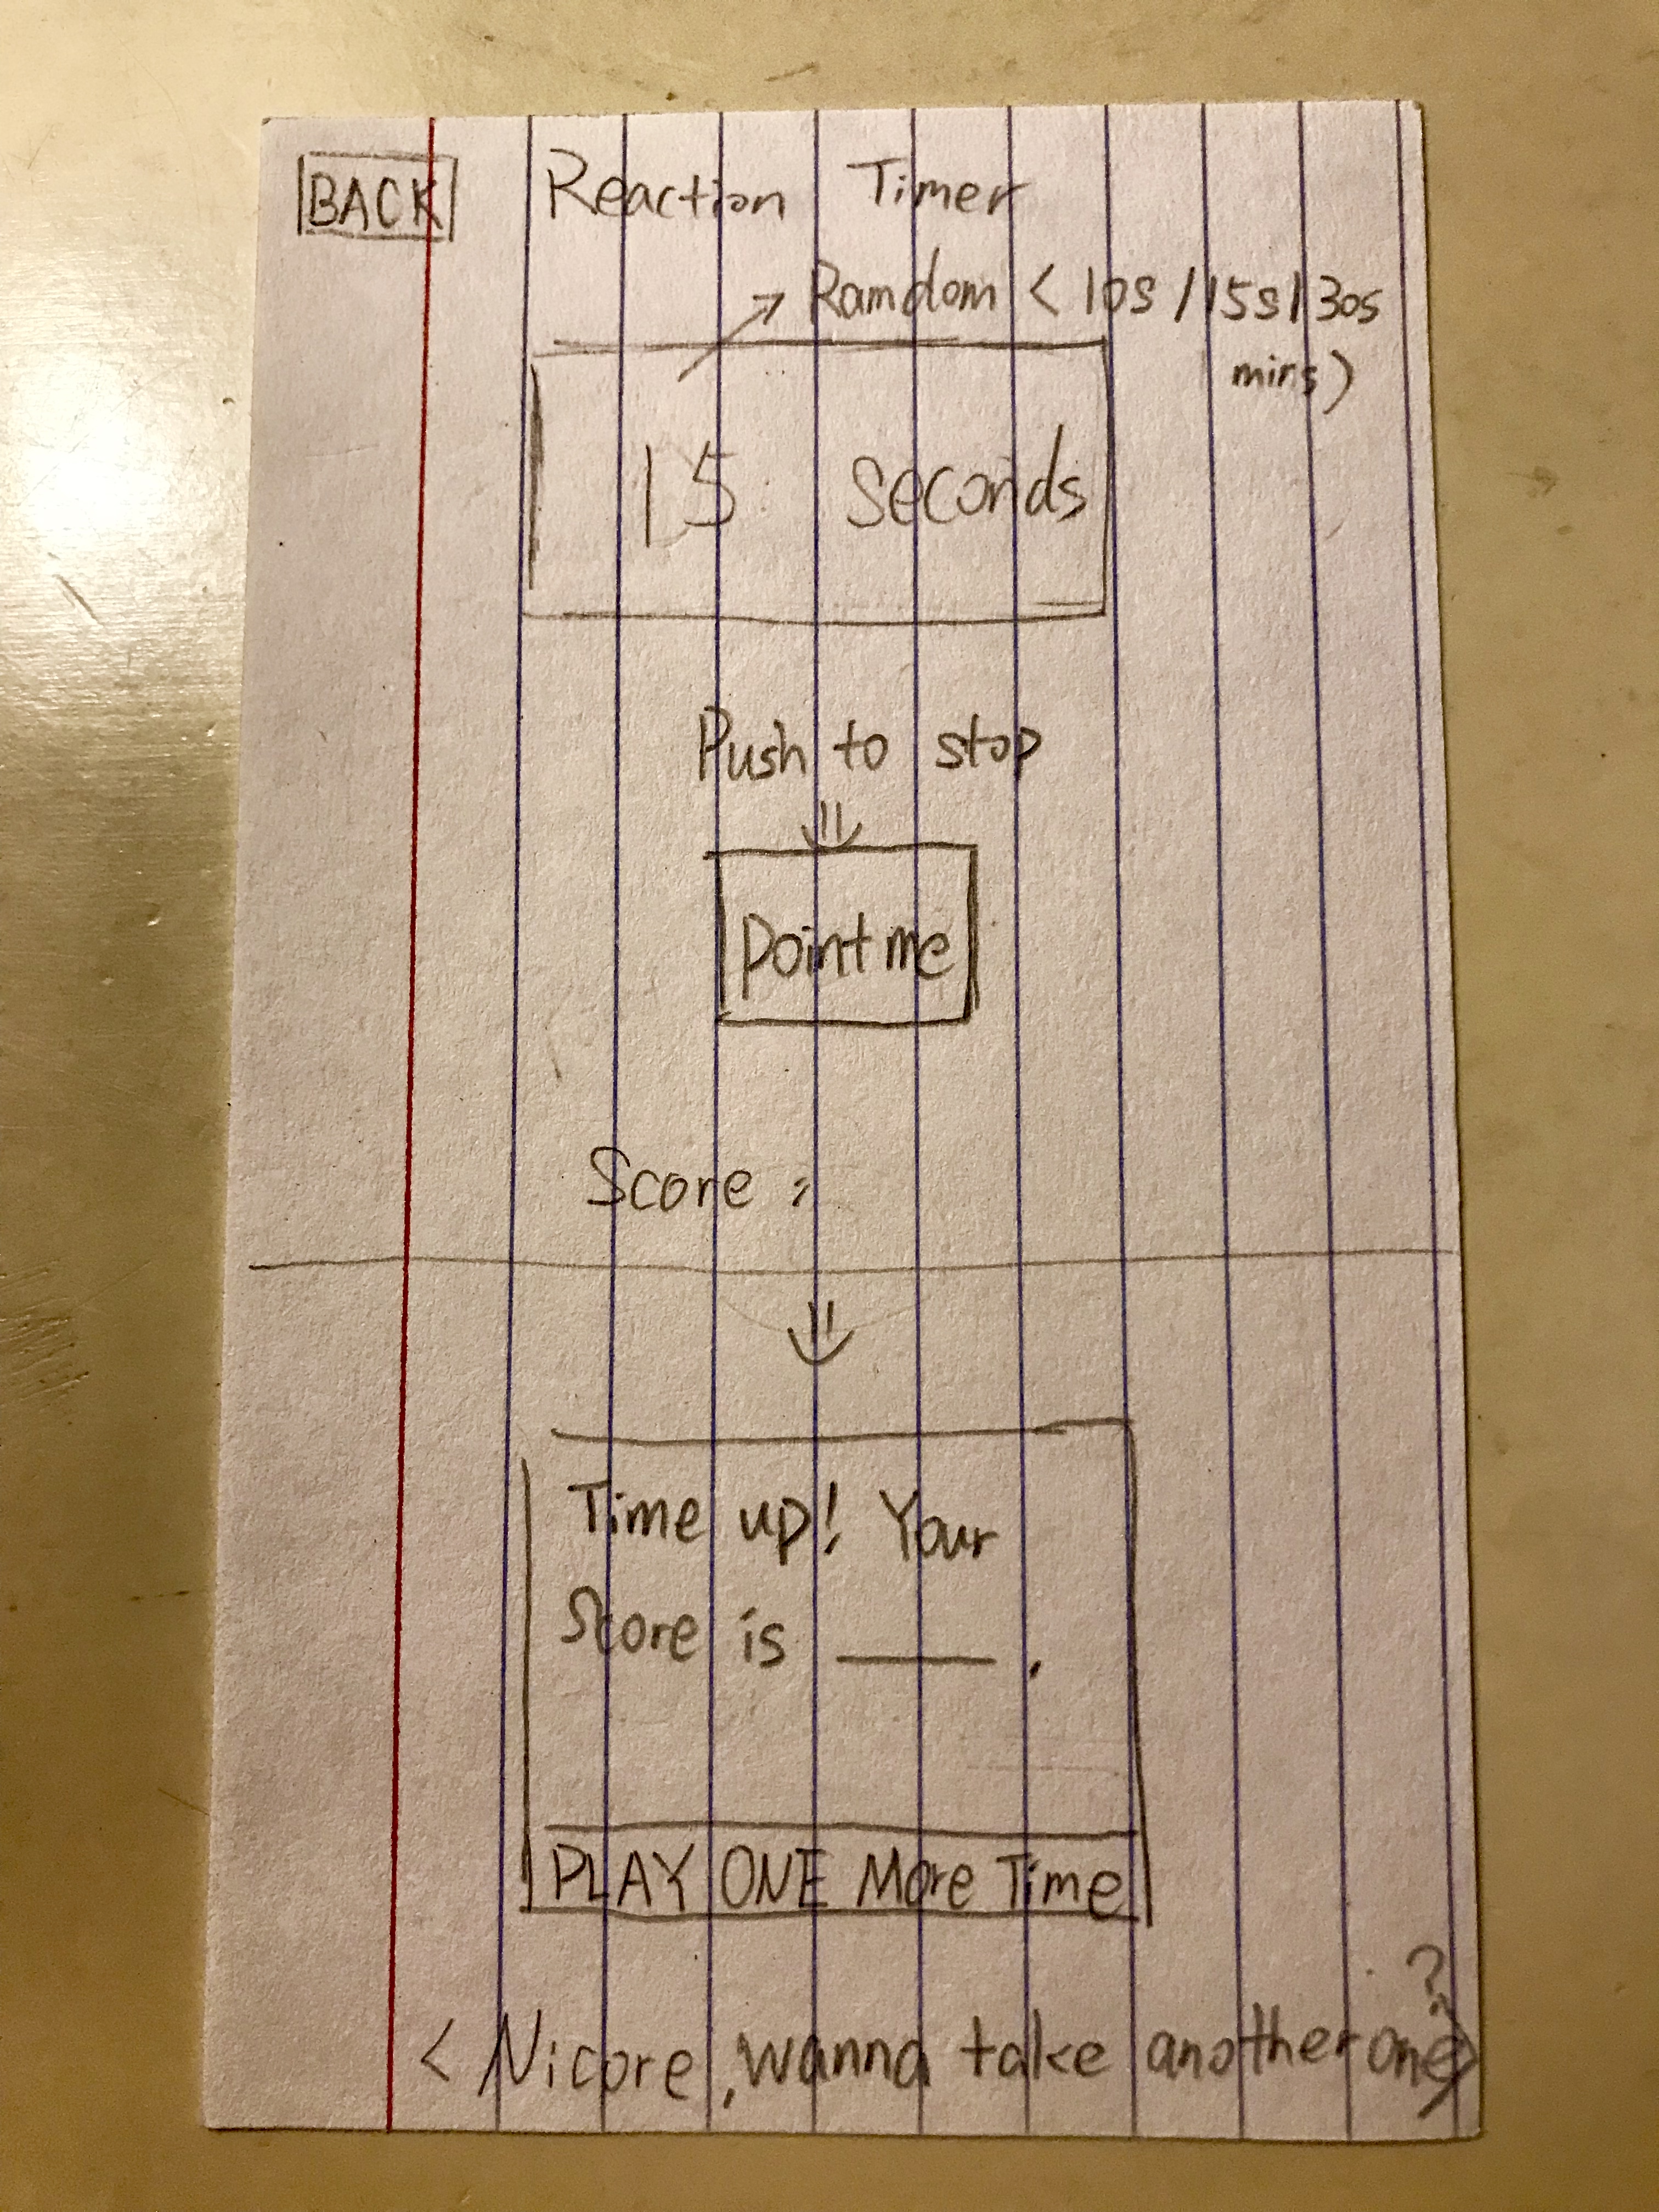 BACK Reaction Timer
Ramdom < 10s / 15s / 30s
mins)
15 seconds
Push to stop
point me
Score :
Time up! Your
Score is ____.
PLAY ONE More Time
< Nicore, wanna take another one?>